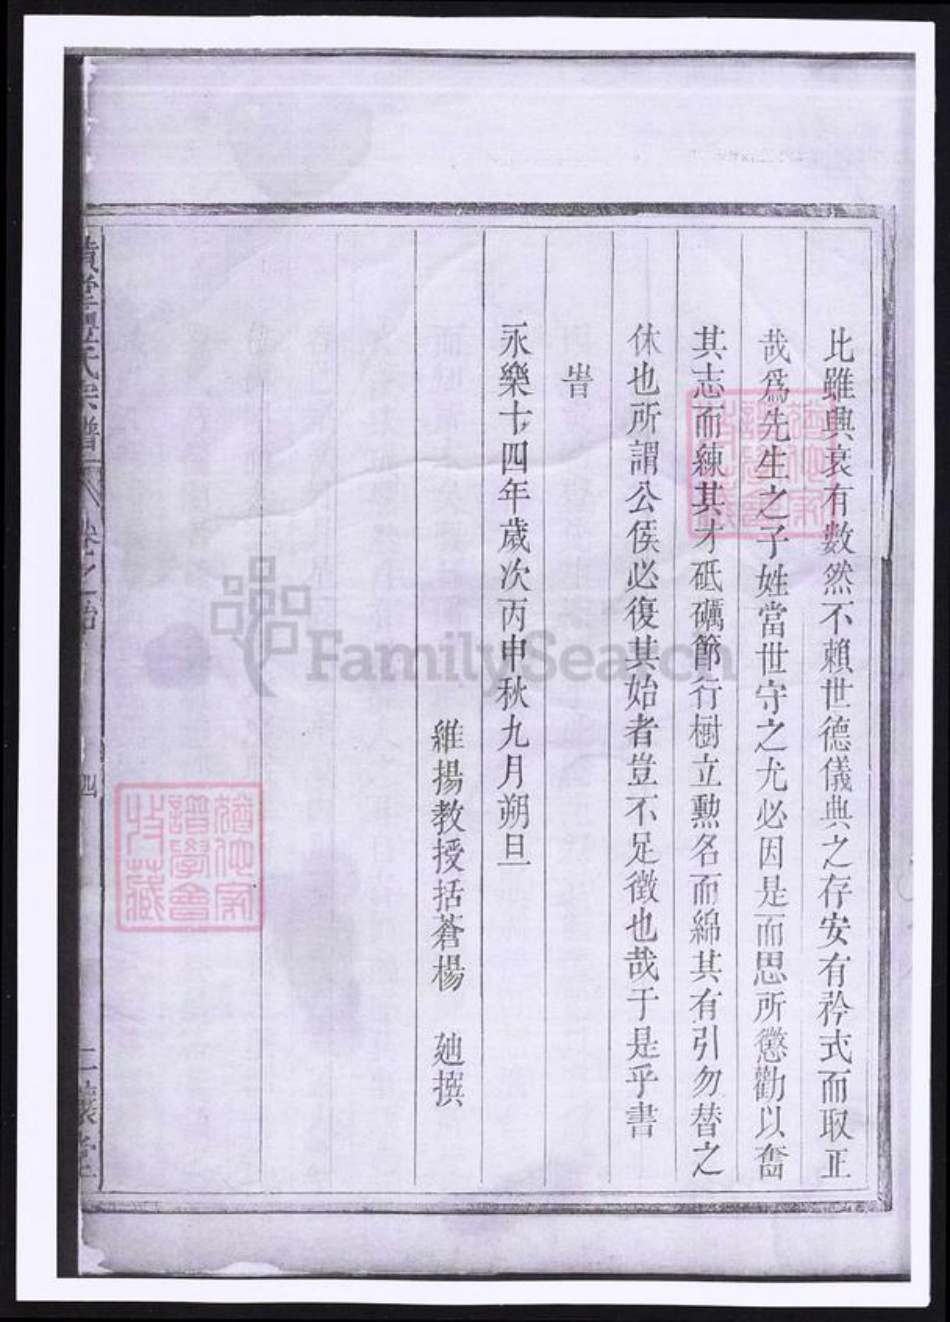 比雖興衰有數然不賴世德儀典之存安有矜式而取正
哉爲先生之子姓當世守之尤必因是而思所懲勸以奮
其志而練其才砥礪節行樹立勲名而綿其有引勿替之
休也所謂公侯必復其始者豈不足徵也哉于是乎書
旹
永樂十四年歲次丙申秋九月朔旦
維揚教授括蒼楊 廸撰
氏宗譜 卷之 四
FamilySearch
譜學會
收藏